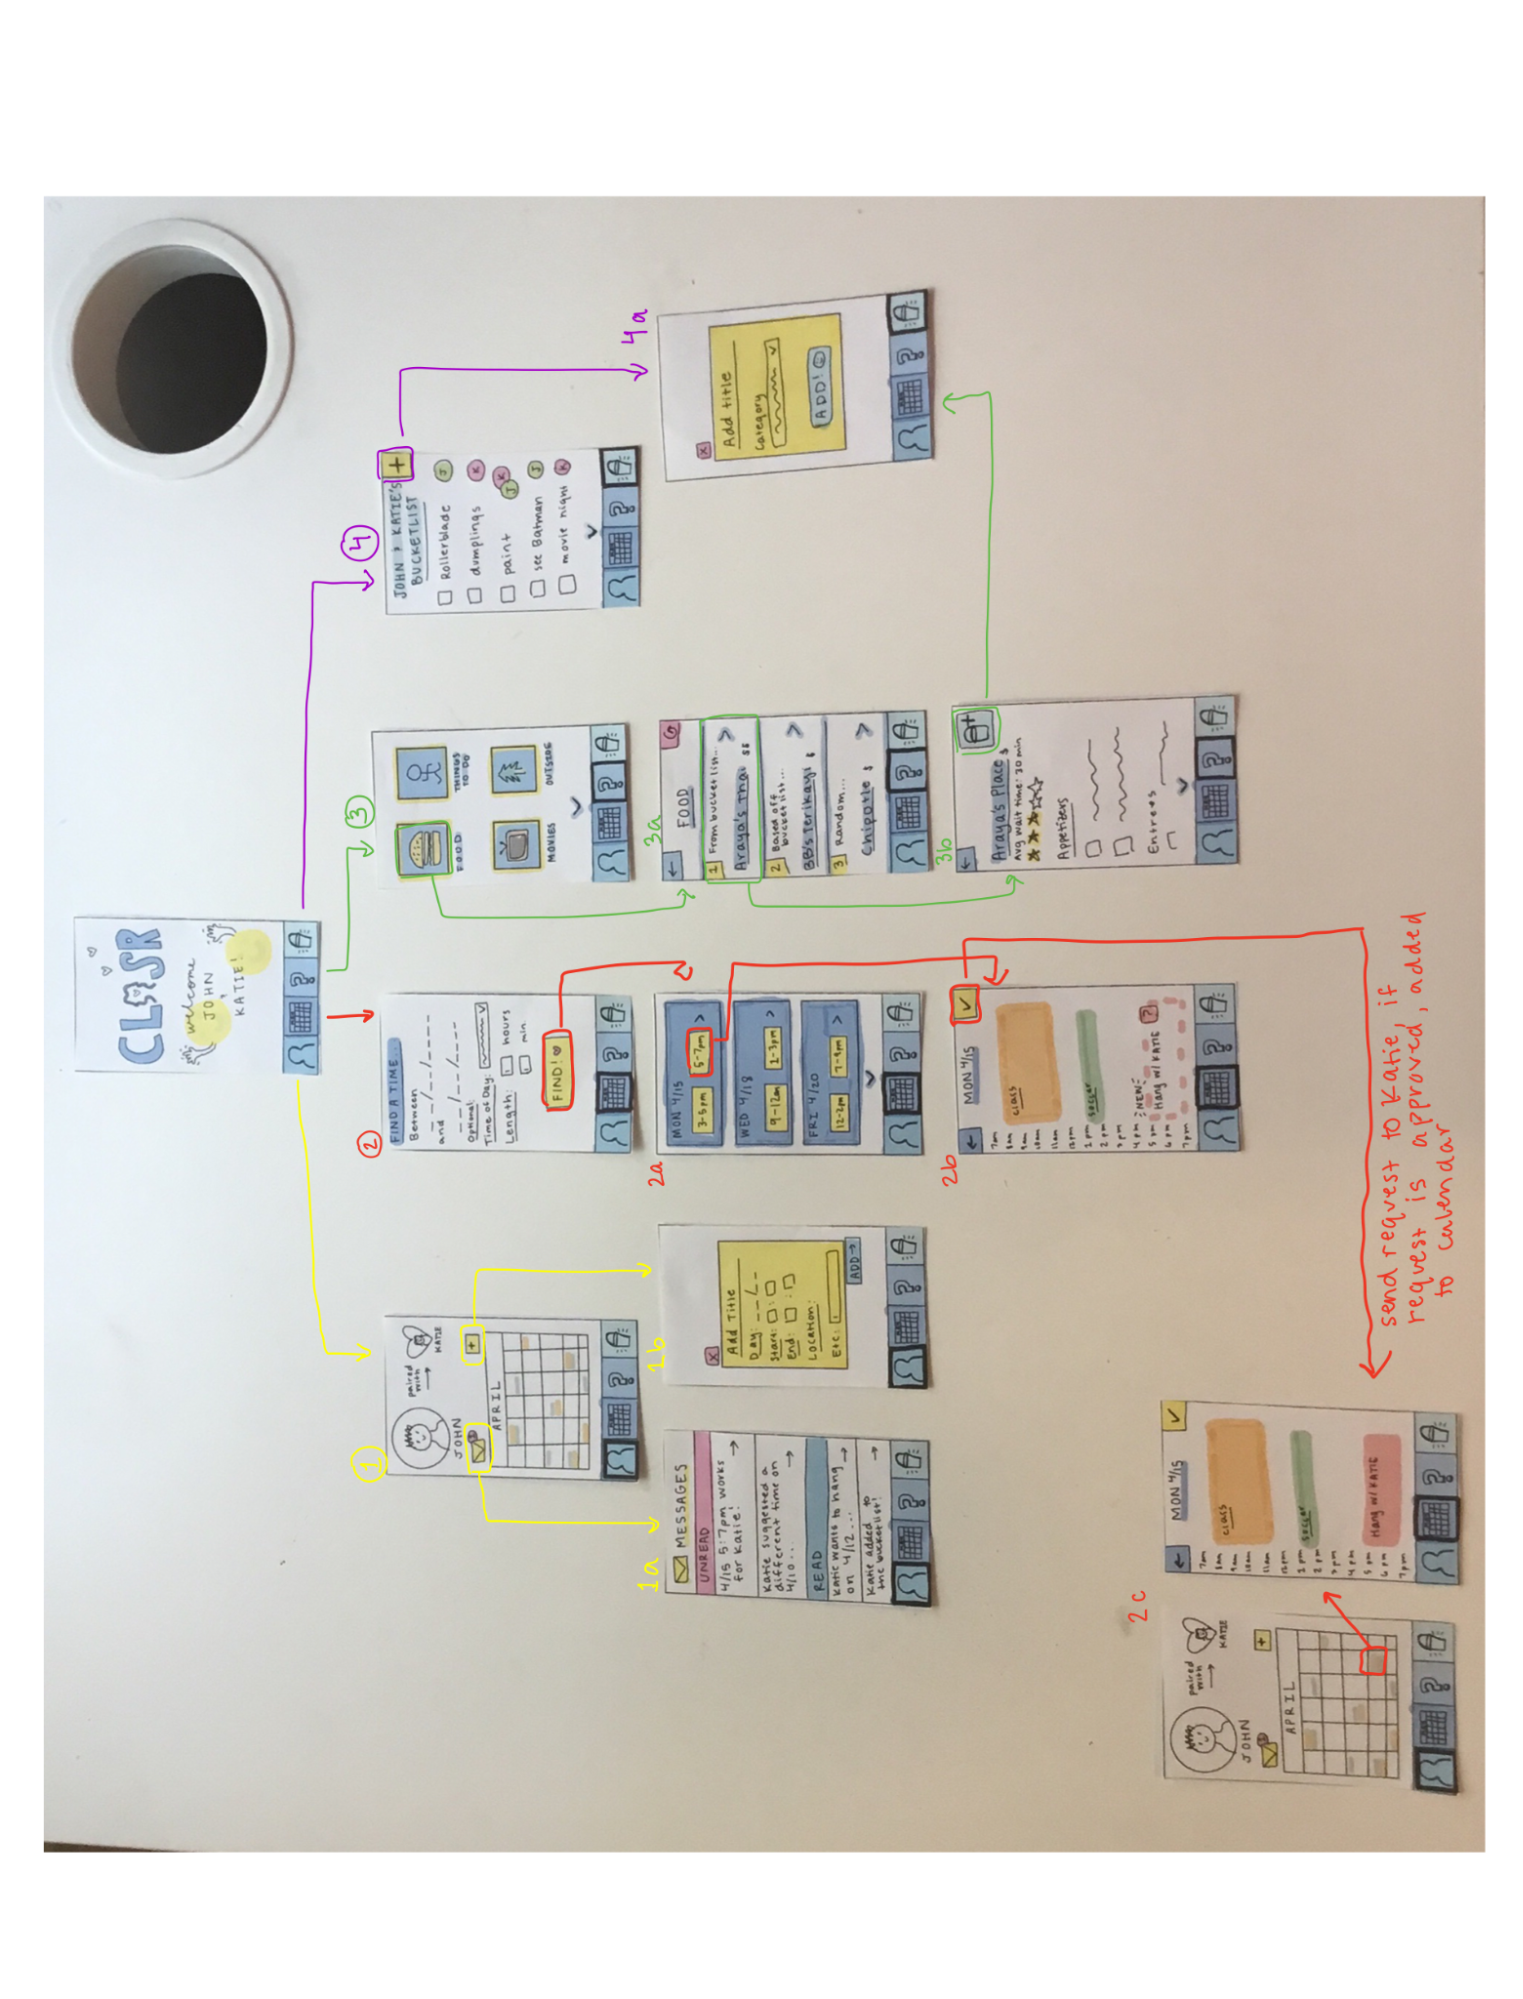 CLOSR
welcome
JOHN
&
KATIE!
1
JOHN
paired
with
KATIE
APRIL
1a
MESSAGES
UNREAD
4/15 5-7pm works
for Katie!
Katie suggested a
different time on
4/10...
READ
Katie wants to hang
on 4/12...
Katie added to
the bucketlist!
1b
x
Add Title
Day: __/__
Start: :
End: :
Location:
Etc:
ADD→
2
FIND A TIME...
Between
__/__/____
and
__/__/____
Optional:
Time of Day:
Length:
hours
min
FIND!
2a
MON 4/15
3-5pm
5-7pm
WED 4/18
9-12am
2-3pm
FRI 4/20
12-2pm
7-9pm
2b
MON 4/15
7am
8am
9am
10am
11am
12pm
1pm
2pm
3pm
4pm
5pm
6pm
7pm
class
soccer
NEW
Hang w/ KATIE
?
send request to Katie, if
request is approved, added
to calendar
2c
JOHN
paired
with
KATIE
APRIL
MON 4/15
7am
8am
9am
10am
11am
12pm
1pm
2pm
3pm
4pm
5pm
6pm
7pm
class
soccer
Hang w/ KATIE
3
FOOD
THINGS
TO DO
MOVIES
OUTSIDE
3a
FOOD
1 From bucket list...
Araya's Thai $$
2 Based off
bucket list...
BB's Terikayi $
3 Random...
Chipotle $
3b
Araya's Place $
Avg wait time: 30 min
Appetizers
Entrees
4
JOHN & KATIE'S
BUCKETLIST
+
Rollerblade J
dumplings K
paint J K
see Batman J
movie night K
4a
x
Add title
Category
ADD!